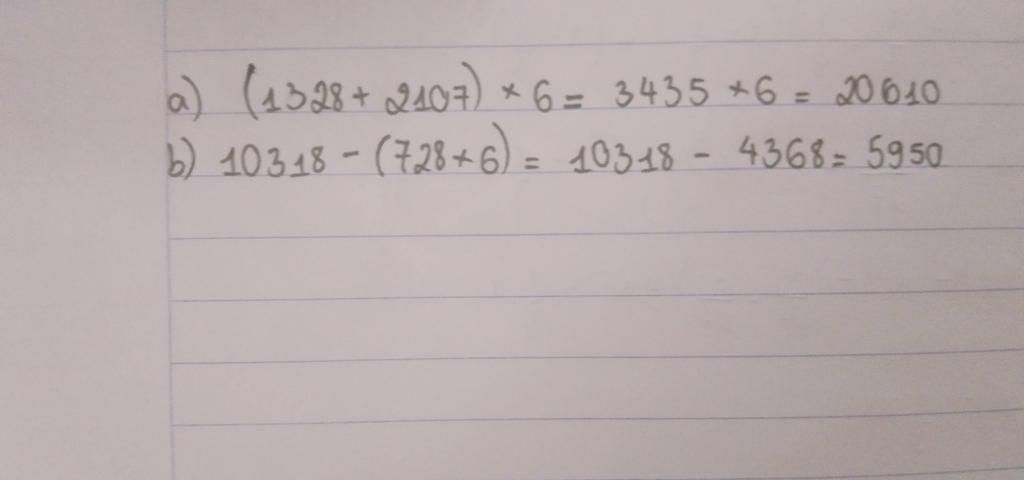 a) (1328 + 2107) × 6 = 3435 × 6 = 20610
b) 10318 - (728 × 6) = 10318 - 4368 = 5950